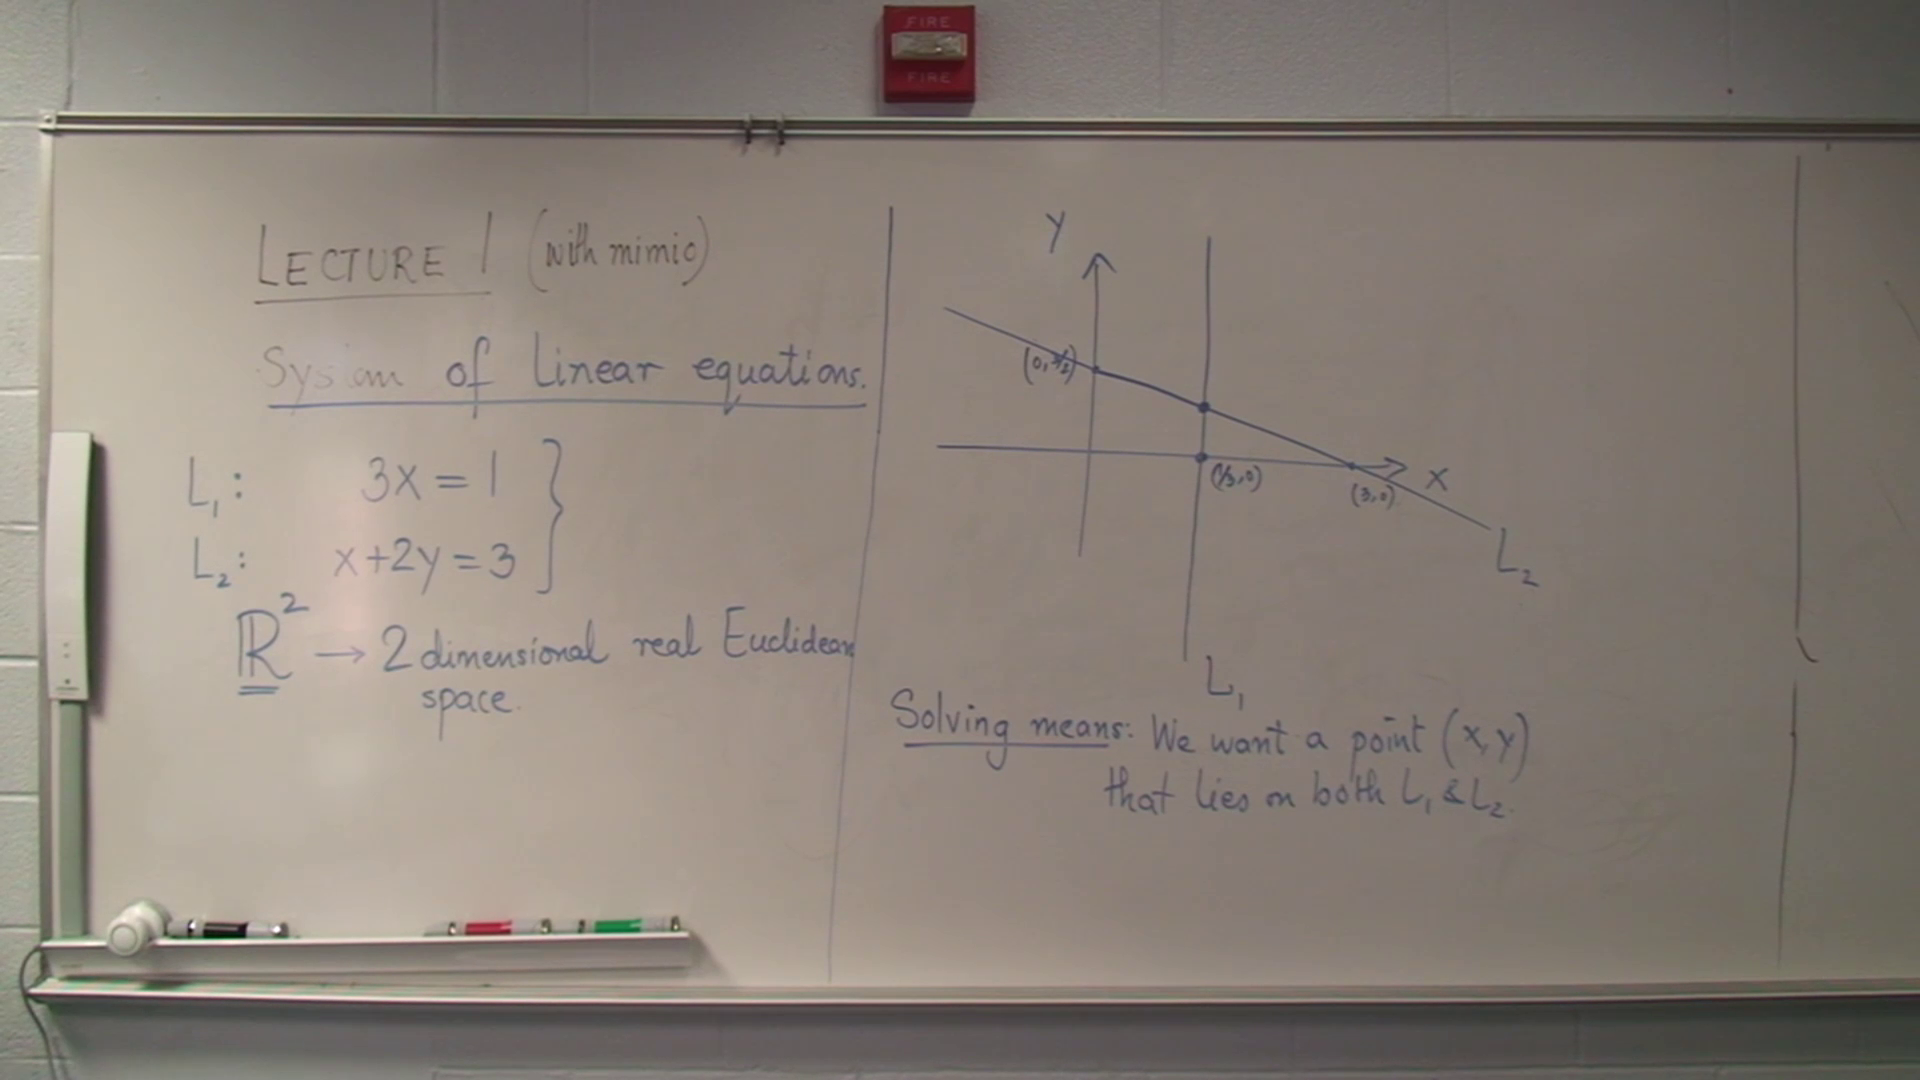 FIRE
FIRE
LECTURE 1 (with mimio)
System of Linear equations.
L₁: 3x = 1
L₂: x+2y = 3
ℝ² → 2 dimensional real Euclidean
space.
y
(0, 3/2)
(1/3, 0)
x
(3, 0)
L₂
L₁
Solving means: We want a point (x, y)
that lies on both L₁ & L₂.